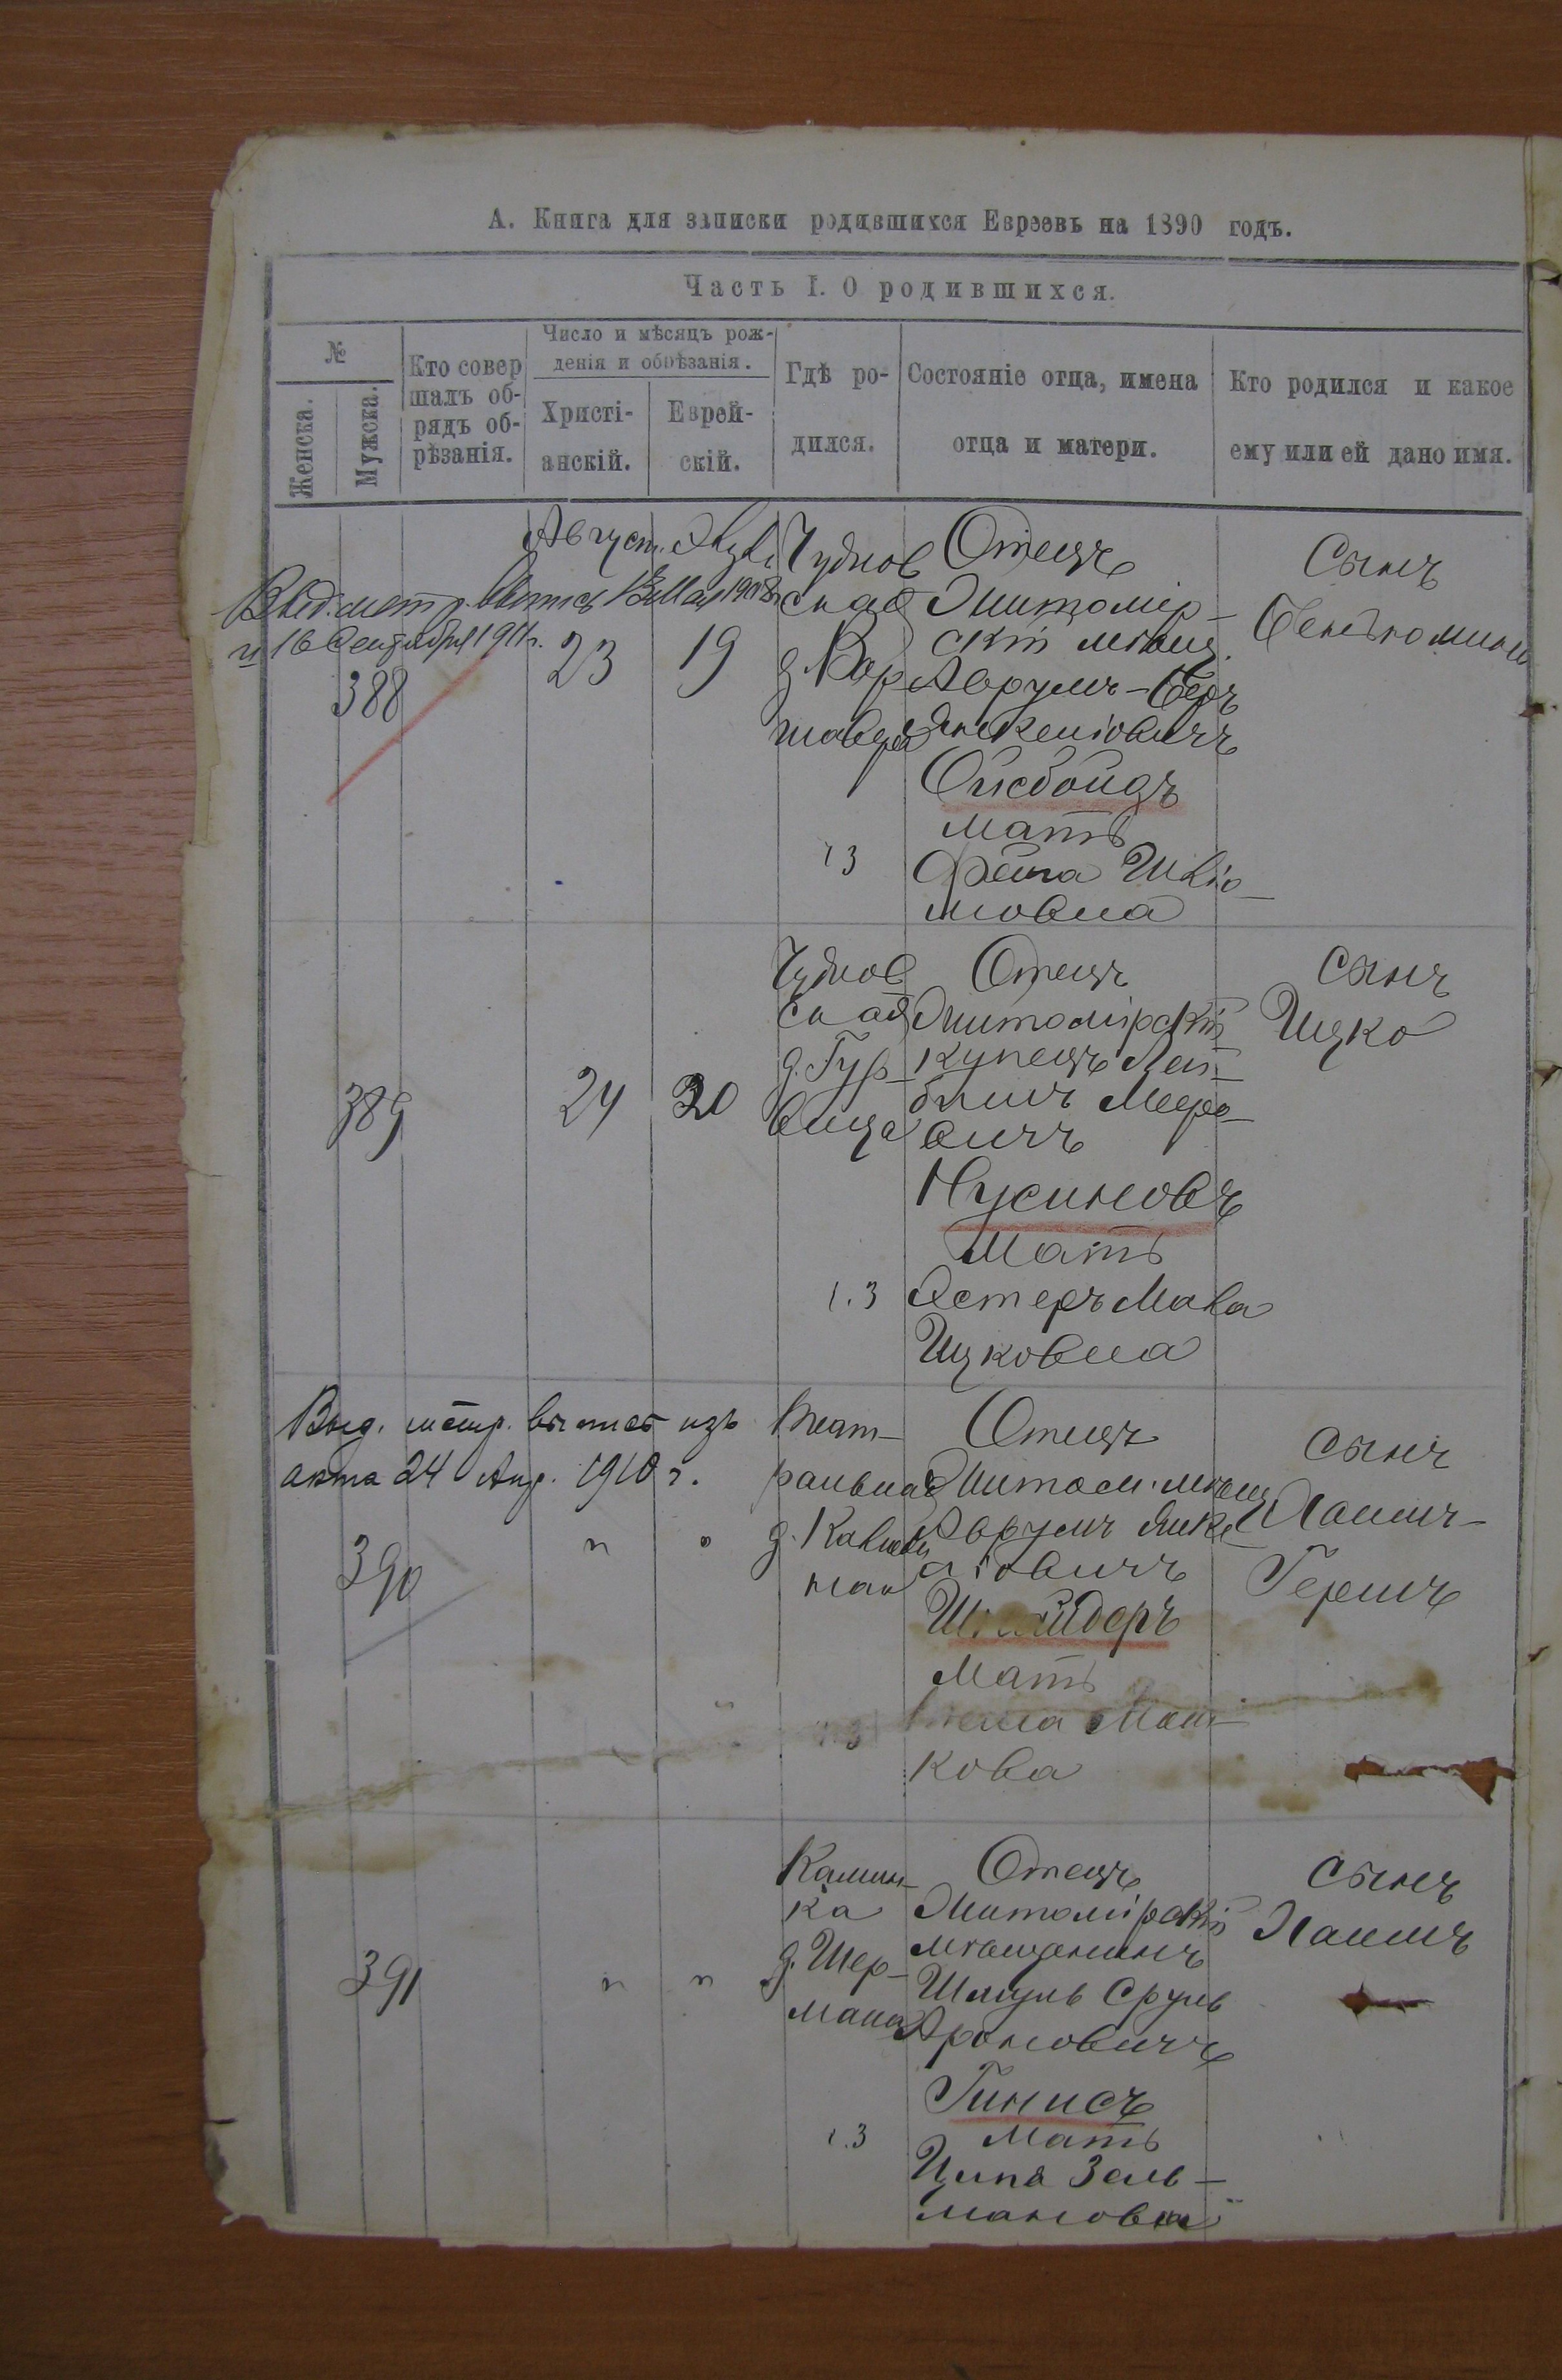 А. Книга для записи родившихся Евреевъ на 1890 годъ.
Часть I. О родившихся.
№
Женска.
Мужска.
Кто совер
шалъ об-
рядъ об-
рѣзанія.
Число и мѣсяцъ рож-
денія и обрѣзанія.
Христі-
анскій.
Еврей-
скій.
Гдѣ ро-
дился.
Состояніе отца, имена
отца и матери.
Кто родился и какое
ему или ей дано имя.
Август.
16 Сентября 1911г.
388
23
19
Чуднов
ская
д. Вар
шавера
13
Отецъ
Житомір-
скій мѣщ.
Аврумъ-Беръ
Янкеліовичъ
Ойсбойдъ
мать
Фейга
мовна
Сынъ
389
24
20
Чуднов
ская
д. Гур-
вица
1.3
Отецъ
Житомірскій
купецъ Лей-
бишъ Меро-
вичъ
Нусиновъ
Мать
Эстеръ Малка
Ицковна
сынъ
Ицко
Выд. метр. выпись изъ
акта 24 Апр. 1910 г.
390
"
"
Театральная
д.
Отецъ
Житом. мѣщ
Аврумъ Янке
ліовичъ
Шнайдеръ
Мать
кова
сынъ
Хаимъ-
Гершъ
391
"
"
Камин-
ка
д. Шер-
мана
1.3
Отецъ
Житомірскій
мѣщанинъ
Шмуль Сруль
Ароновичъ
Гинисъ
мать
Ципа Зель-
мановна
сынъ
Хаимъ